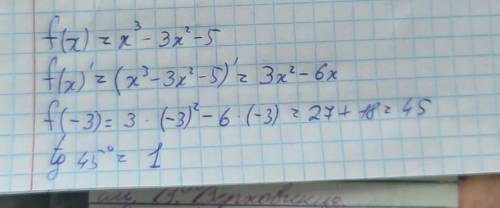 f(x) = x³ - 3x² - 5
f(x)' = (x³ - 3x² - 5)' = 3x² - 6x
f(-3) = 3 · (-3)² - 6 · (-3) = 27 + 18 = 45
tg 45° = 1